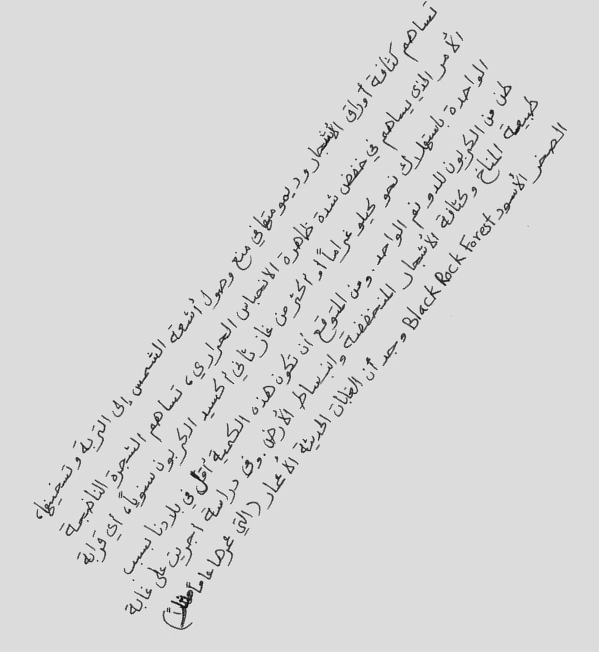 تساهم كثافة أوراق الأشجار وديمومتها في منع وصول أشعة الشمس إلى التربة وتسخينها،
الأمر الذي يساهم في خفض شدة ظاهرة الانحباس الحراري، تساهم الشجرة الناضجة
الواحدة باستهلاك نحو كيلو غراماً أو أكثر من غاز ثاني أكسيد الكربون سنوياً، أي قرابة
طن من الكربون للدونم الواحد. ومن المتوقع أن تكون هذه الكمية أقل في بلادنا بسبب
طبيعة المناخ وكثافة الأشجار المنخفضة وانبساط الأرض. وفي دراسة اجريت على غابة
الصخر الأسود Black Rock Forest وجد أن الغابات الحديثة الأعمار (التي عمرها عاماً مثلاً)